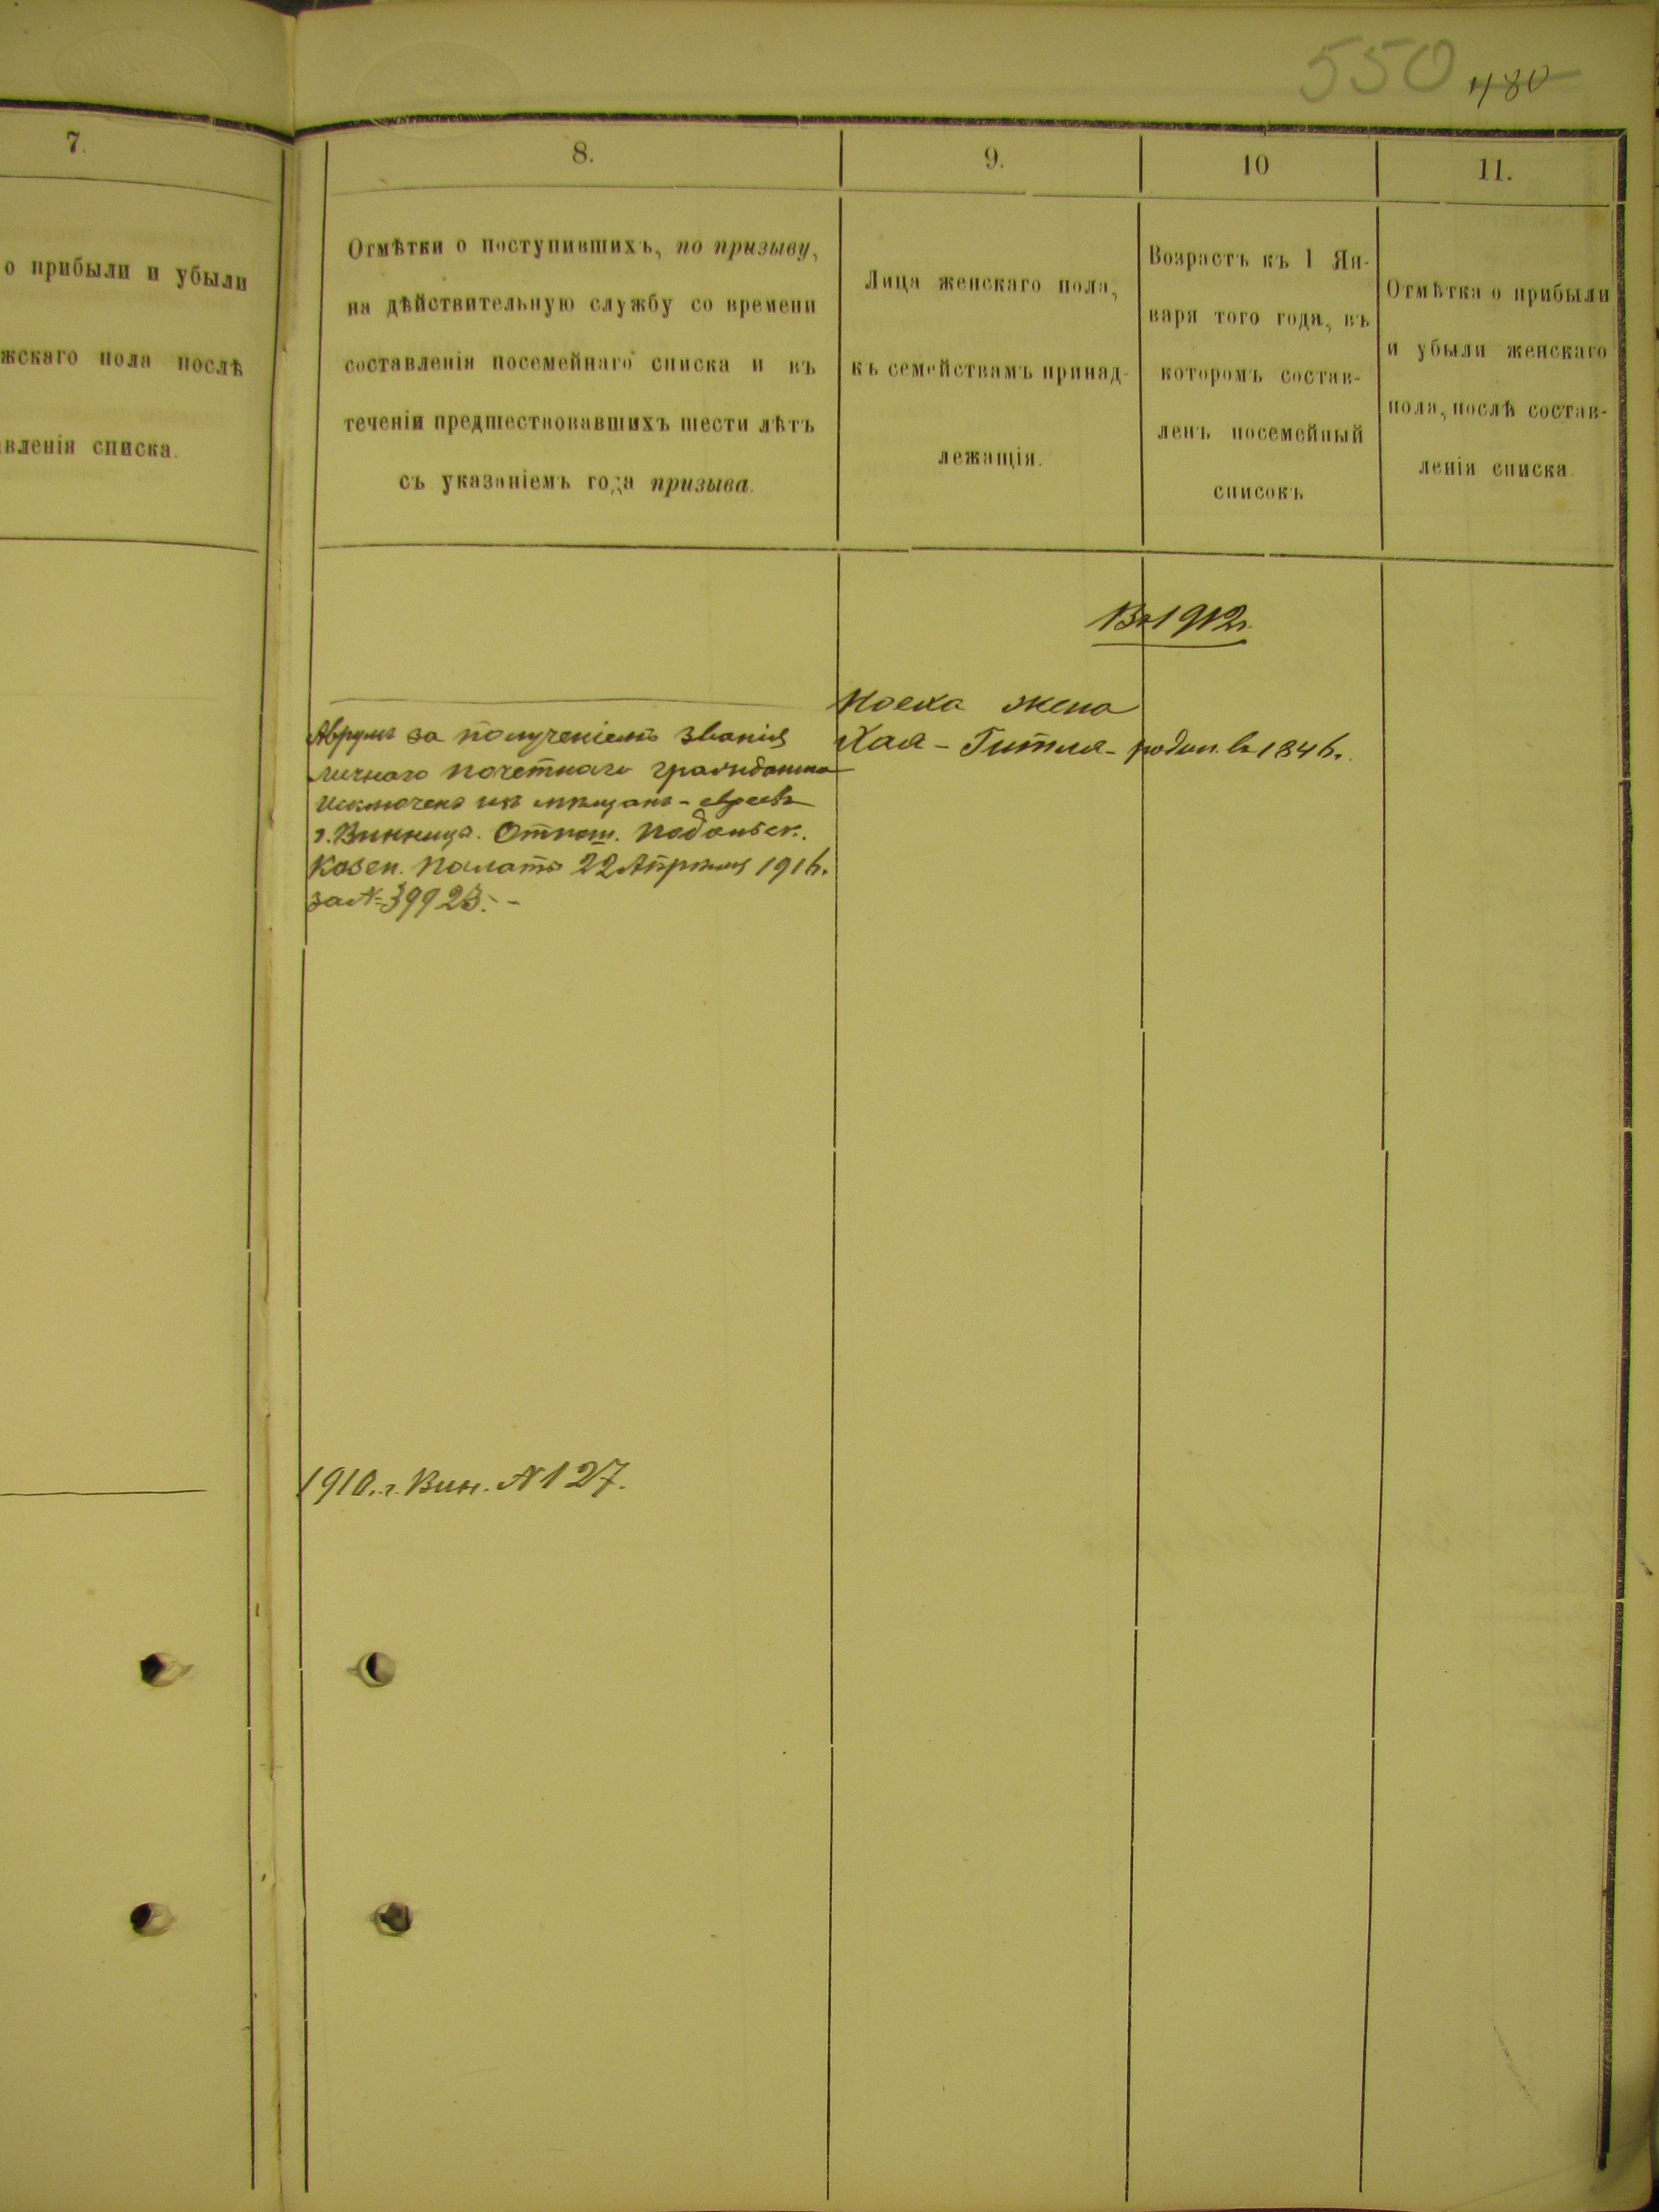 550 480
7.
о прибыли и убыли
жскаго пола послѣ
вленія списка.
8.
Отмѣтки о поступившихъ, по призыву,
на дѣйствительную службу со времени
составленія посемейнаго списка и въ
теченіи предшествовавшихъ шести лѣтъ
съ указаніемъ года призыва.
9.
Лица женскаго пола,
къ семействамъ принад-
лежащія.
10
Возрастъ къ 1 Ян-
варя того года, въ
которомъ состав-
ленъ посемейный
списокъ
11.
Отмѣтка о прибыли
и убыли женскаго
пола, послѣ состав-
ленія списка.
Въ 1912 г.
Аврумъ за полученіемъ званія
личнаго почетнаго гражданина
исключенъ изъ мѣщанъ-евреевъ
г. Винница. Отнош. Подольск.
Казен. Палаты 22 Апрѣля 191
за № 39923.
Мос жена
Хая-Гитля- родил. в 184
1910. г. Вин. № 127.